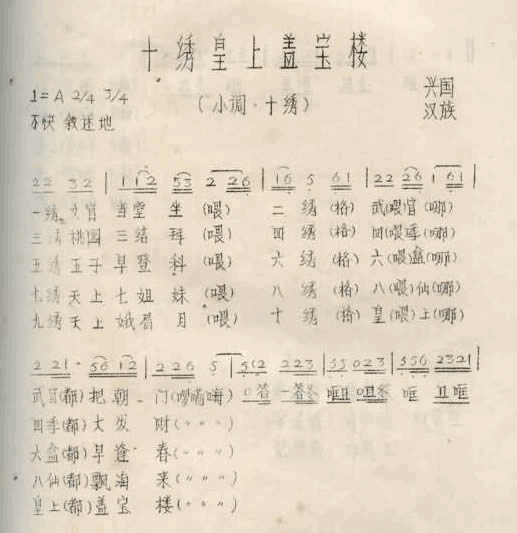 十绣皇上盖宝楼
1=A 2/4 3/4
(小调·十绣)
兴国
汉族
不快 叙述地
22 32 | 112 53 2 226 | 16 5 61 | 22 26 1 61 |
一绣文官当堂坐(喂) 二绣(格)武(喂)官(哪)
三绣桃园三结拜(喂) 四绣(格)四(喂)季(哪)
五绣五子早登科(喂) 六绣(格)六(喂)盒(哪)
七绣天上七姐妹(喂) 八绣(格)八(喂)仙(哪)
九绣天上娥眉月(喂) 十绣(格)皇(喂)上(哪)
2 21· 56 12 | 2 26 5 | 512 223 | 55 023 | 556 2321 |
武官(都)把朝门(啰嗬嗨) 0答 一答冬 哐且 0且冬 哐 且哐
四季(都)大发财(〃〃〃)
六盒(都)早逢春(〃〃〃)
八仙(都)飘海来(〃〃〃)
皇上(都)盖宝楼(〃〃〃)